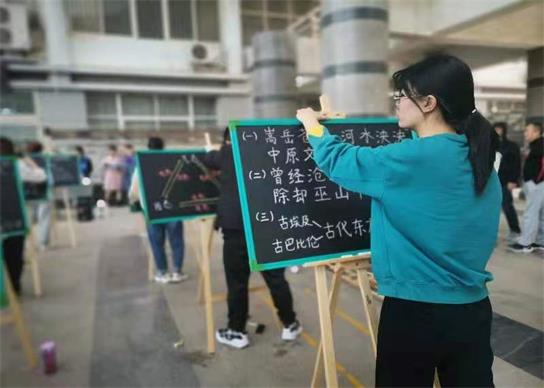 (一) 嵩岳苍 河水泱泱
中原文
(二) 曾经沧
除却巫山
(三) 古埃及
古巴比伦 古代东